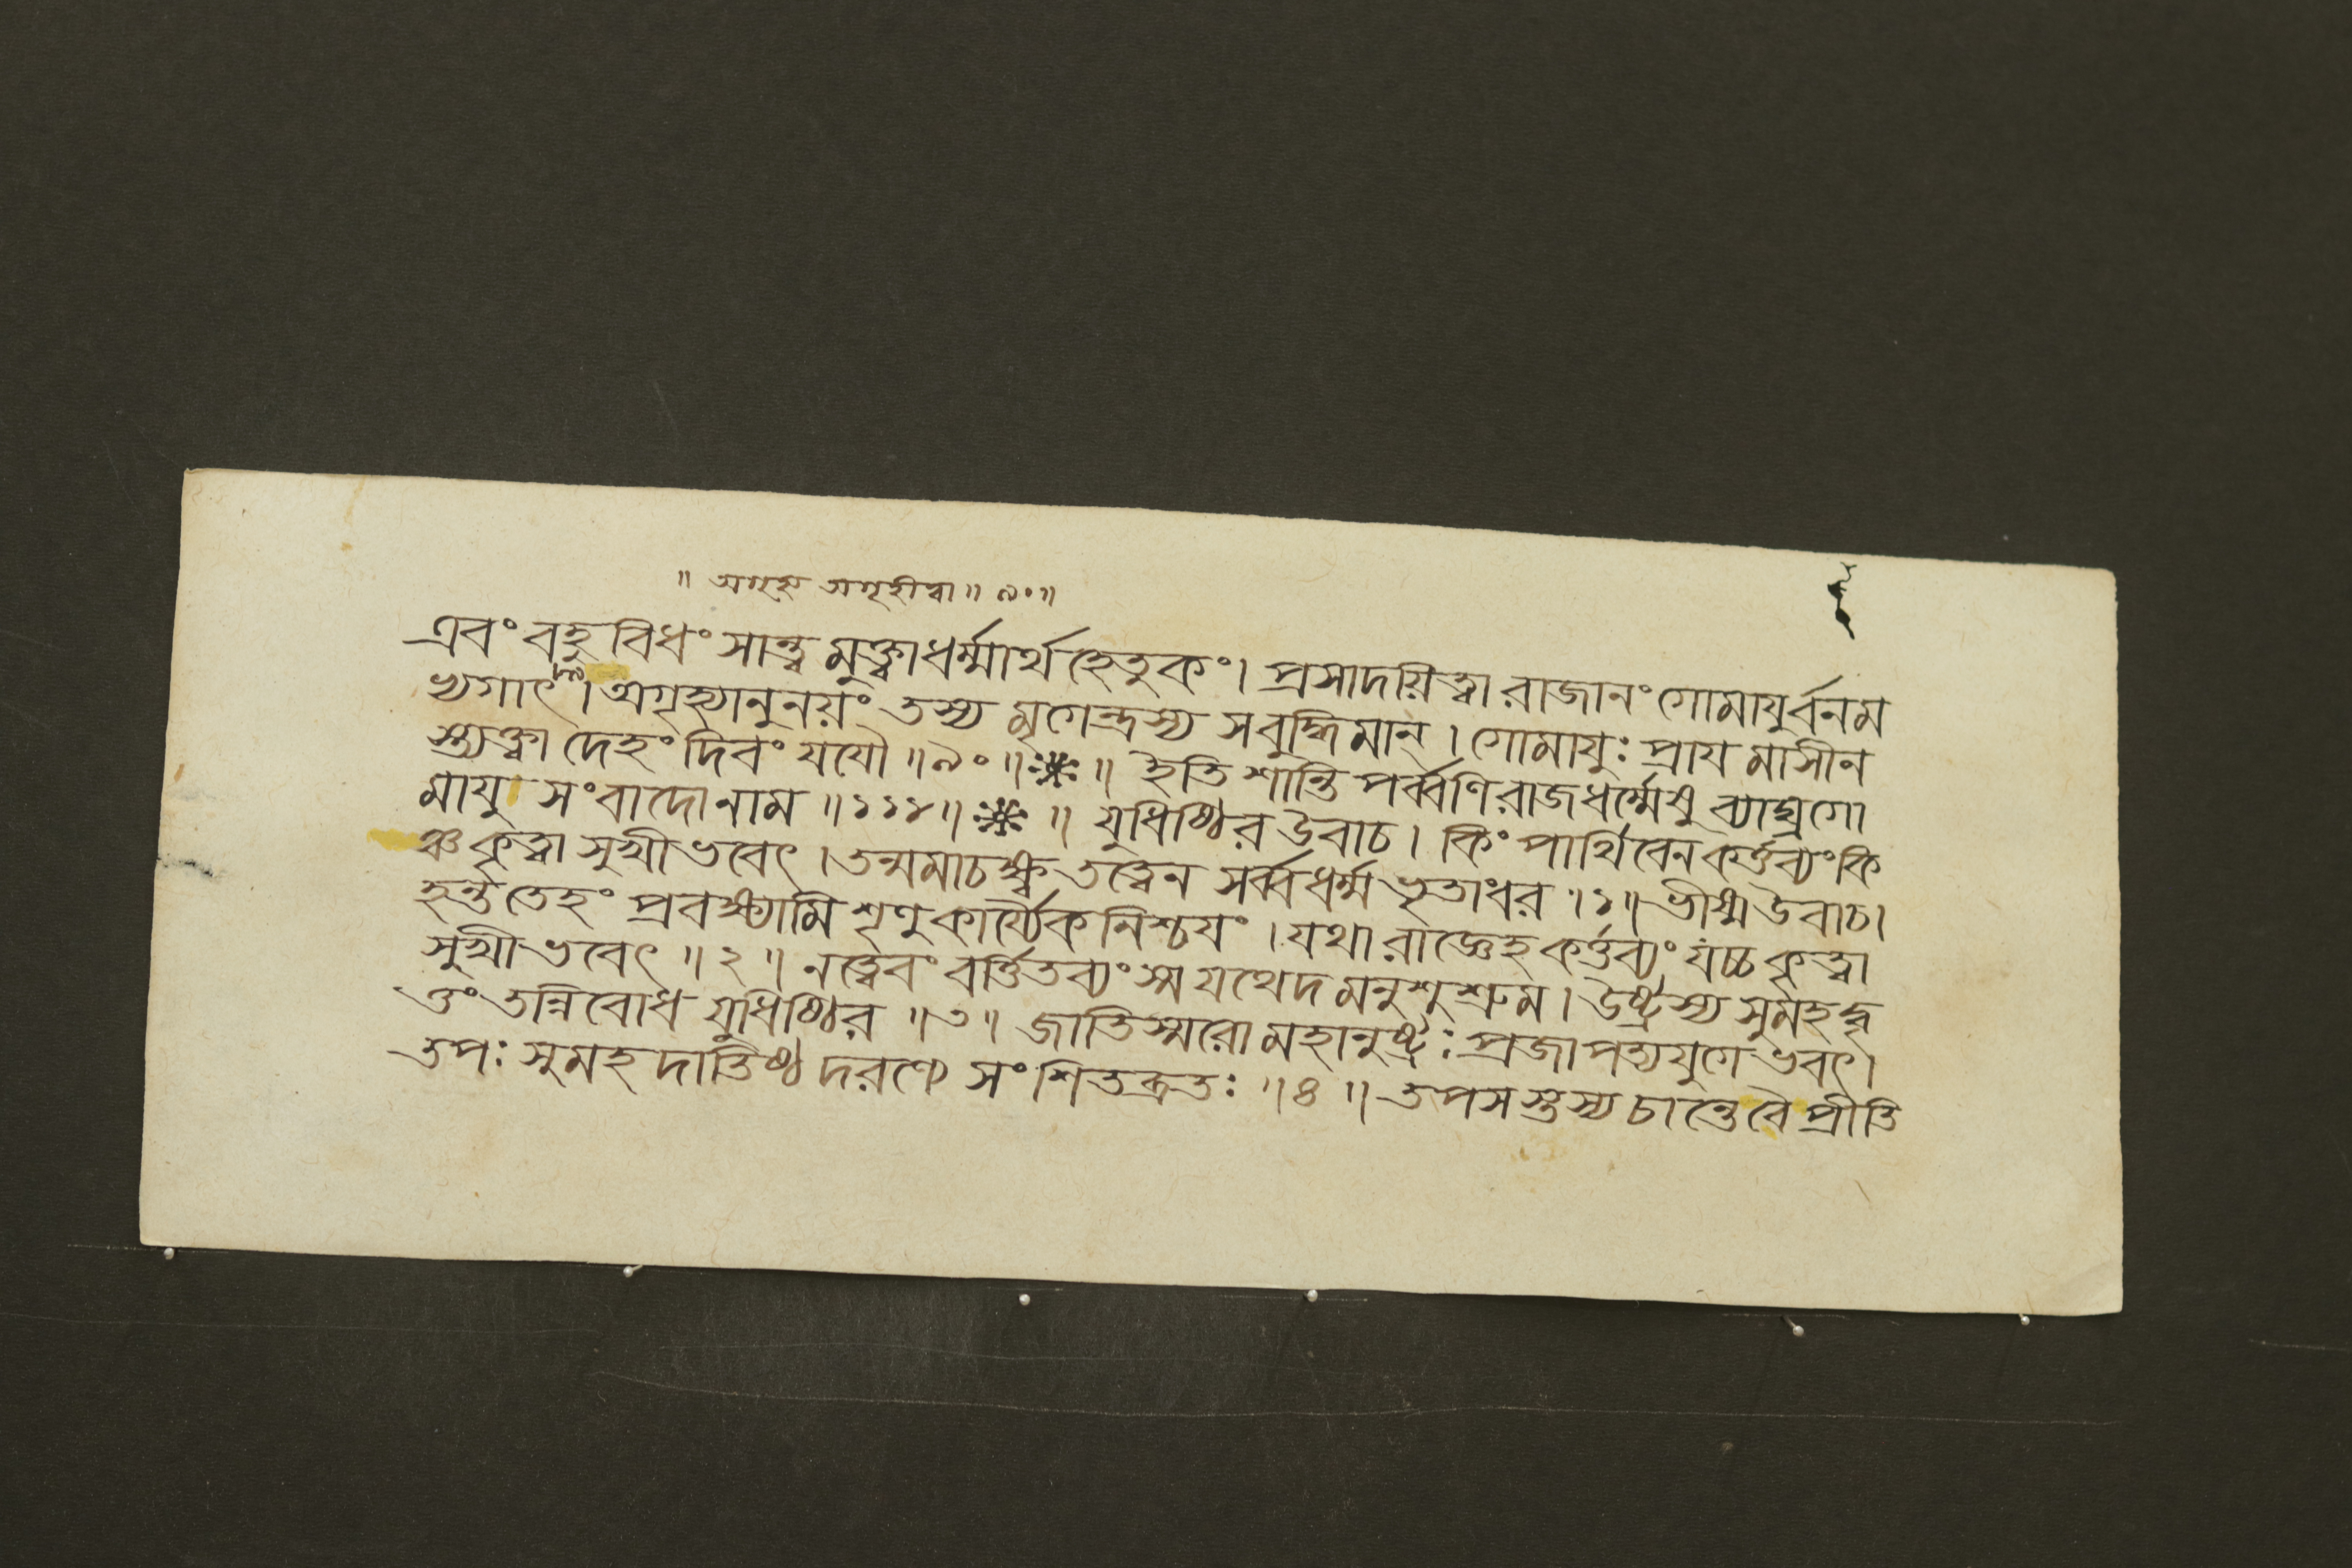 ॥ অগৃহ্য অগৃহীত্বা ॥ ৯০ ॥
এবং বহু বিধং সান্ত্ব মুক্ত্বা ধর্ম্মার্থ হেতুকং। প্রসাদয়িত্বা রাজানং গোমাযুর্বনম
ভ্যগাৎ।৮৯। অগৃহ্যানুনয়ং তস্য মৃগেন্দ্রস্য সবুদ্ধিমান্ । গোমাযুঃ প্রায মাসীন
স্ত্যক্ত্বা দেহং দিবং যযৌ ॥৯০॥ ॥ ইতি শান্তি পর্ব্বণি রাজধর্ম্মেষু ব্যাঘ্রগো
মাযু সংবাদোনাম ॥১১৪॥ ॥ যুধিষ্ঠির উবাচ। কিং পার্থিবেন কর্ত্তব্যং কি
ঞ্চ কৃত্বা সুখী ভবেৎ । তন্মমাচক্ষ্ব তত্ত্বেন সর্ব্বধর্ম্ম ভৃতাংবর ।১॥ ভীষ্ম উবাচ।
হন্ত তেহং প্রবক্ষ্যামি শৃণু কার্য্যৈক নিশ্চযং । যথা রাজ্ঞেহ কর্ত্তব্যং যচ্চ কৃত্বা
সুখী ভবেৎ ॥ ২ ॥ নত্বেবং বর্ত্তিতব্যং স্ম যথেদ মনুশুশ্রুম। উষ্ট্রস্য সুমহদ্বৃ
ত্তং তন্নিবোধ যুধিষ্ঠির ॥৩॥ জাতিস্মরো মহানুষ্ট্রঃ প্রজাপত্যযুগে ভবৎ।
তপঃ সুমহ দাতিষ্ঠ দরণ্যে সংশিতব্রতঃ ॥৪॥ তপসস্তস্য চান্তে বৈ প্রীতি